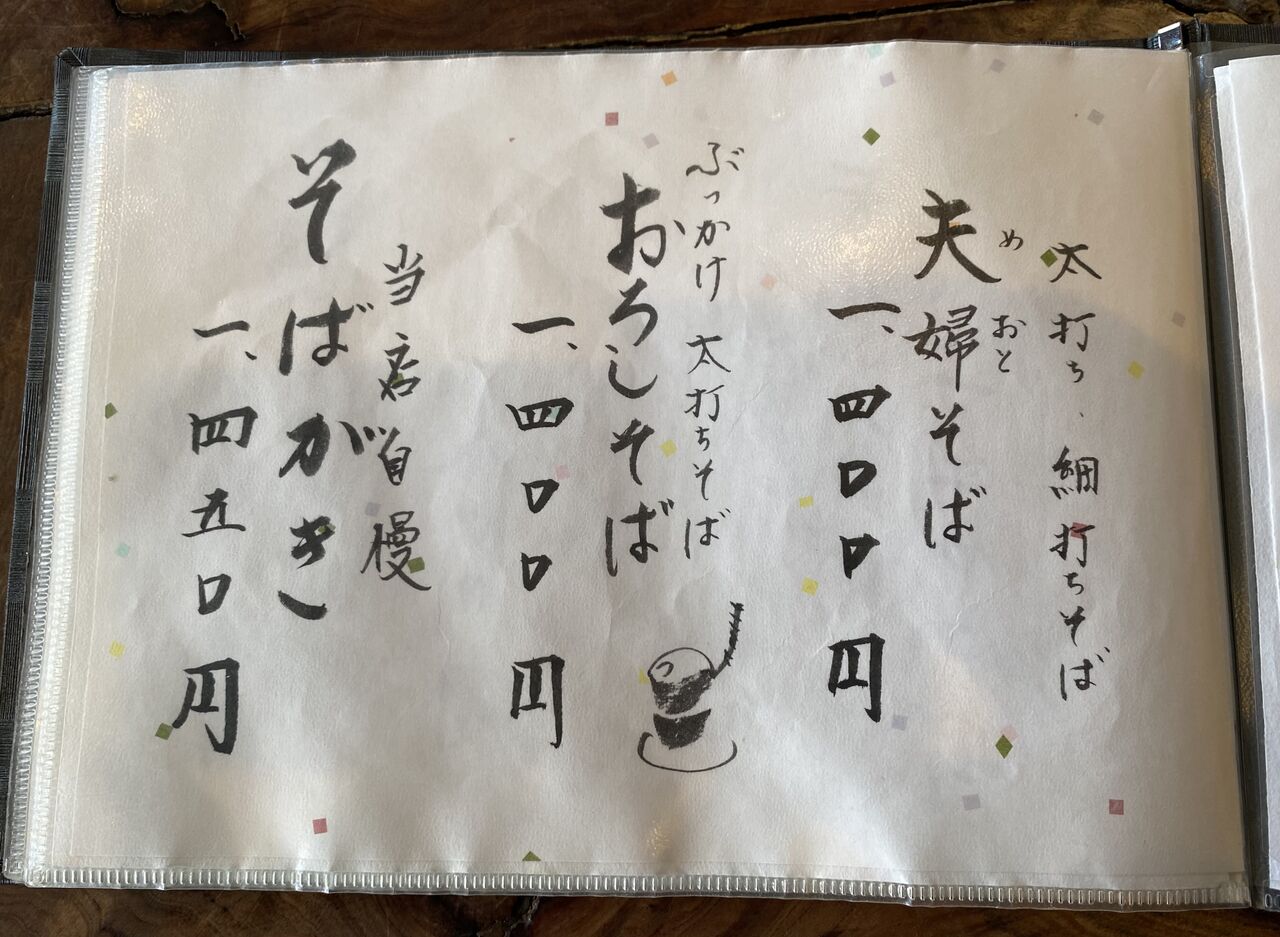 太打ち、細打ちそば
めおと
夫婦そば
一、四〇〇円
ぶっかけ 太打ちそば
おろしそば
一、四〇〇円
当店自慢
そばがき
一、四五〇円